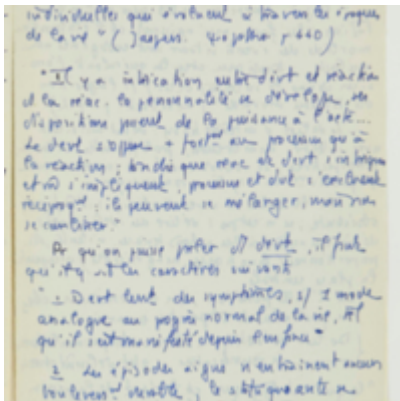 individuelles qui évoluent à travers les époques
de la vie" (Jaspers. ψopatho p 640)
"Il y a intrication entre dvrt et réaction
d la réac. la personnalité se développe, ses
dispositions passent de la puissance à l'acte...
Le devt s'oppose + fortmt au processus qu'à
la réaction; tandis que réac et dvrt s'intriquent
et s'impliquent, processus et dvt s'excluent
réciproqmt; ils peuvent se mélanger, mais non
se combiner."
Pr qu'on puisse parler d dvrt, il faut
qu'il y ait les caractères suivants
"1 Dvrt lent des symptômes, s/ 1 mode
analogue au progrès normal de la vie, et
qu'il s'est manifesté depuis l'enfance"
2 les épisodes aigus n'entraînent aucun
boulevers durable, le statu quo ante